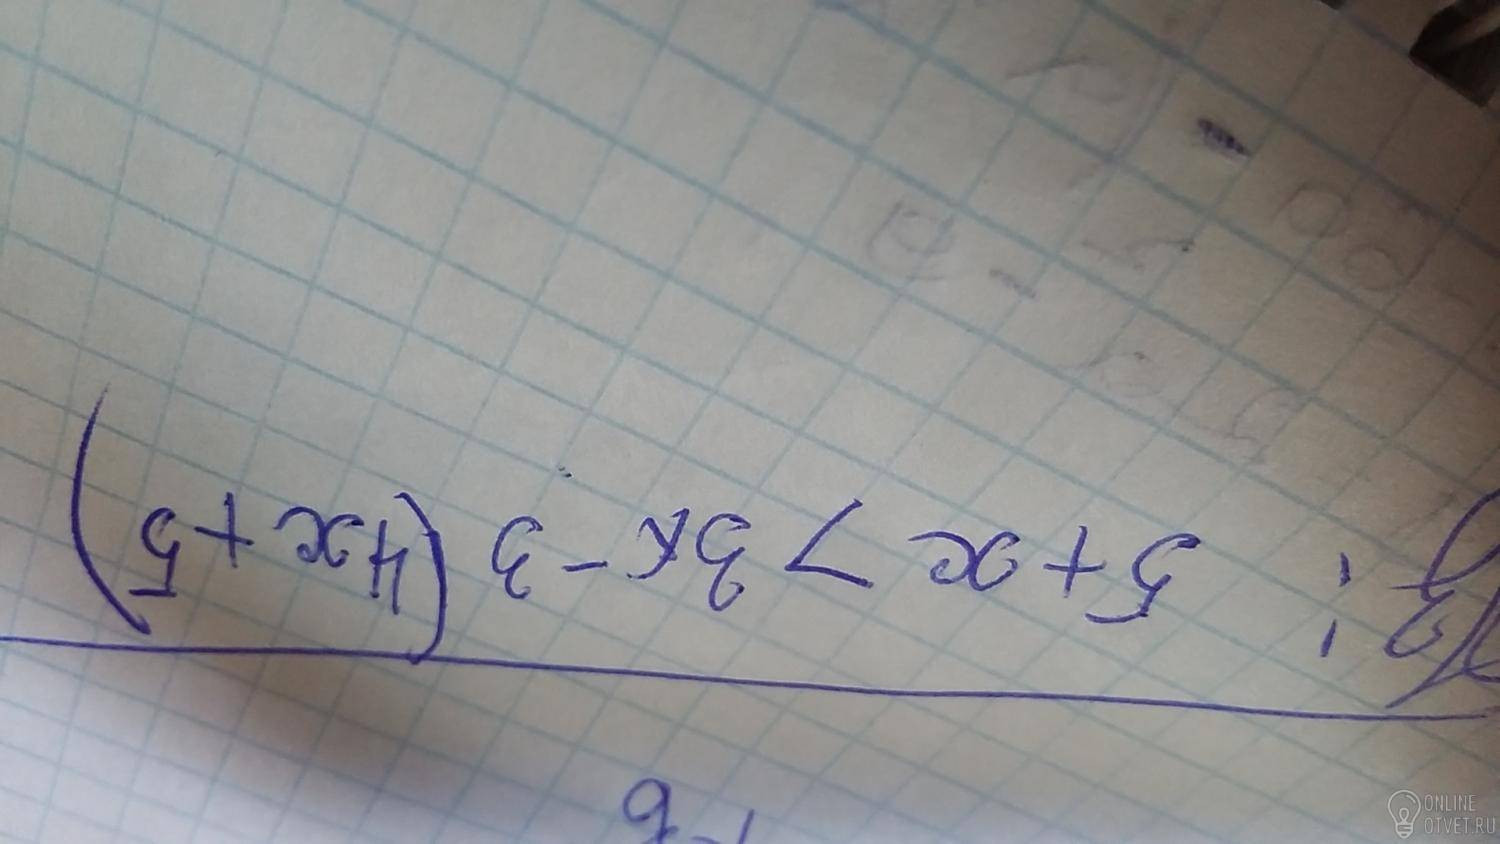 : 5+x > 3x-3(4x+5)
ONLINE
OTVET.RU